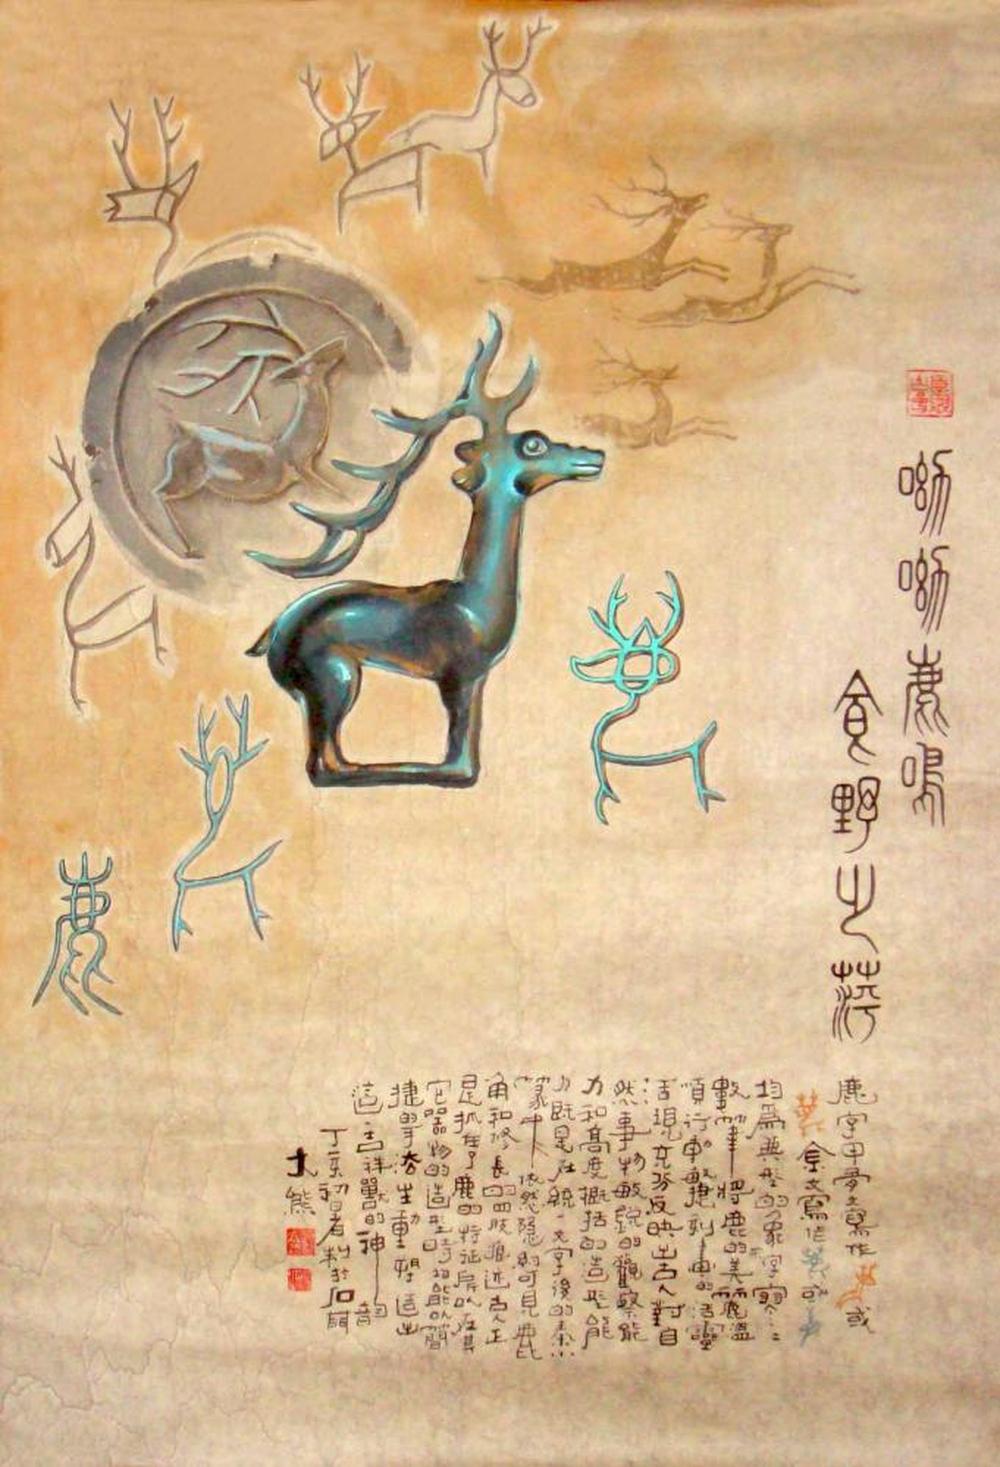 呦呦鹿鳴
食野之苹
鹿字甲骨文寫作或
金文寫作或
均為典型的象形字寥寥
數筆將鹿的美麗溫
順行動敏捷刻畫的活靈
活現充分反映出古人對自
然事物敏銳的觀察能
力和高度概括的造型能
力既是在統一文字後的秦小
篆中依然隱約可見鹿比
角和修長的四肢痕迹古人正
是抓住了鹿的特征所以在其
它器物的造型時均能以簡
捷的手法生動塑造出
這一吉祥獸的神韻
丁亥初日者利於石門
大熊